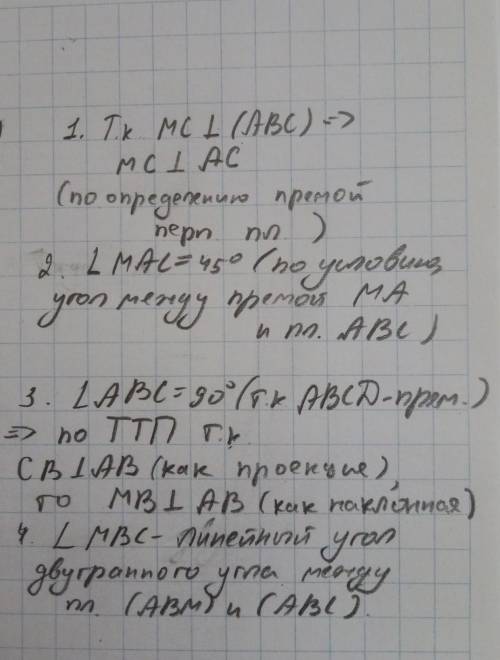 1. Т.к MC⊥(ABC) =>
MC⊥AC
(по определению премой
перп пл )
2. ∠MAC=45° (по условию,
угол между премой MA
и пл. ABC)
3. ∠ABC=90° (т.к ABCD-прям.)
=> по ТТП т.к
CB⊥AB (как проекцие),
то MB⊥AB (как наклонная)
4. ∠MBC- линейный угол
двугранного угла между
пл. (ABM) и (ABC).